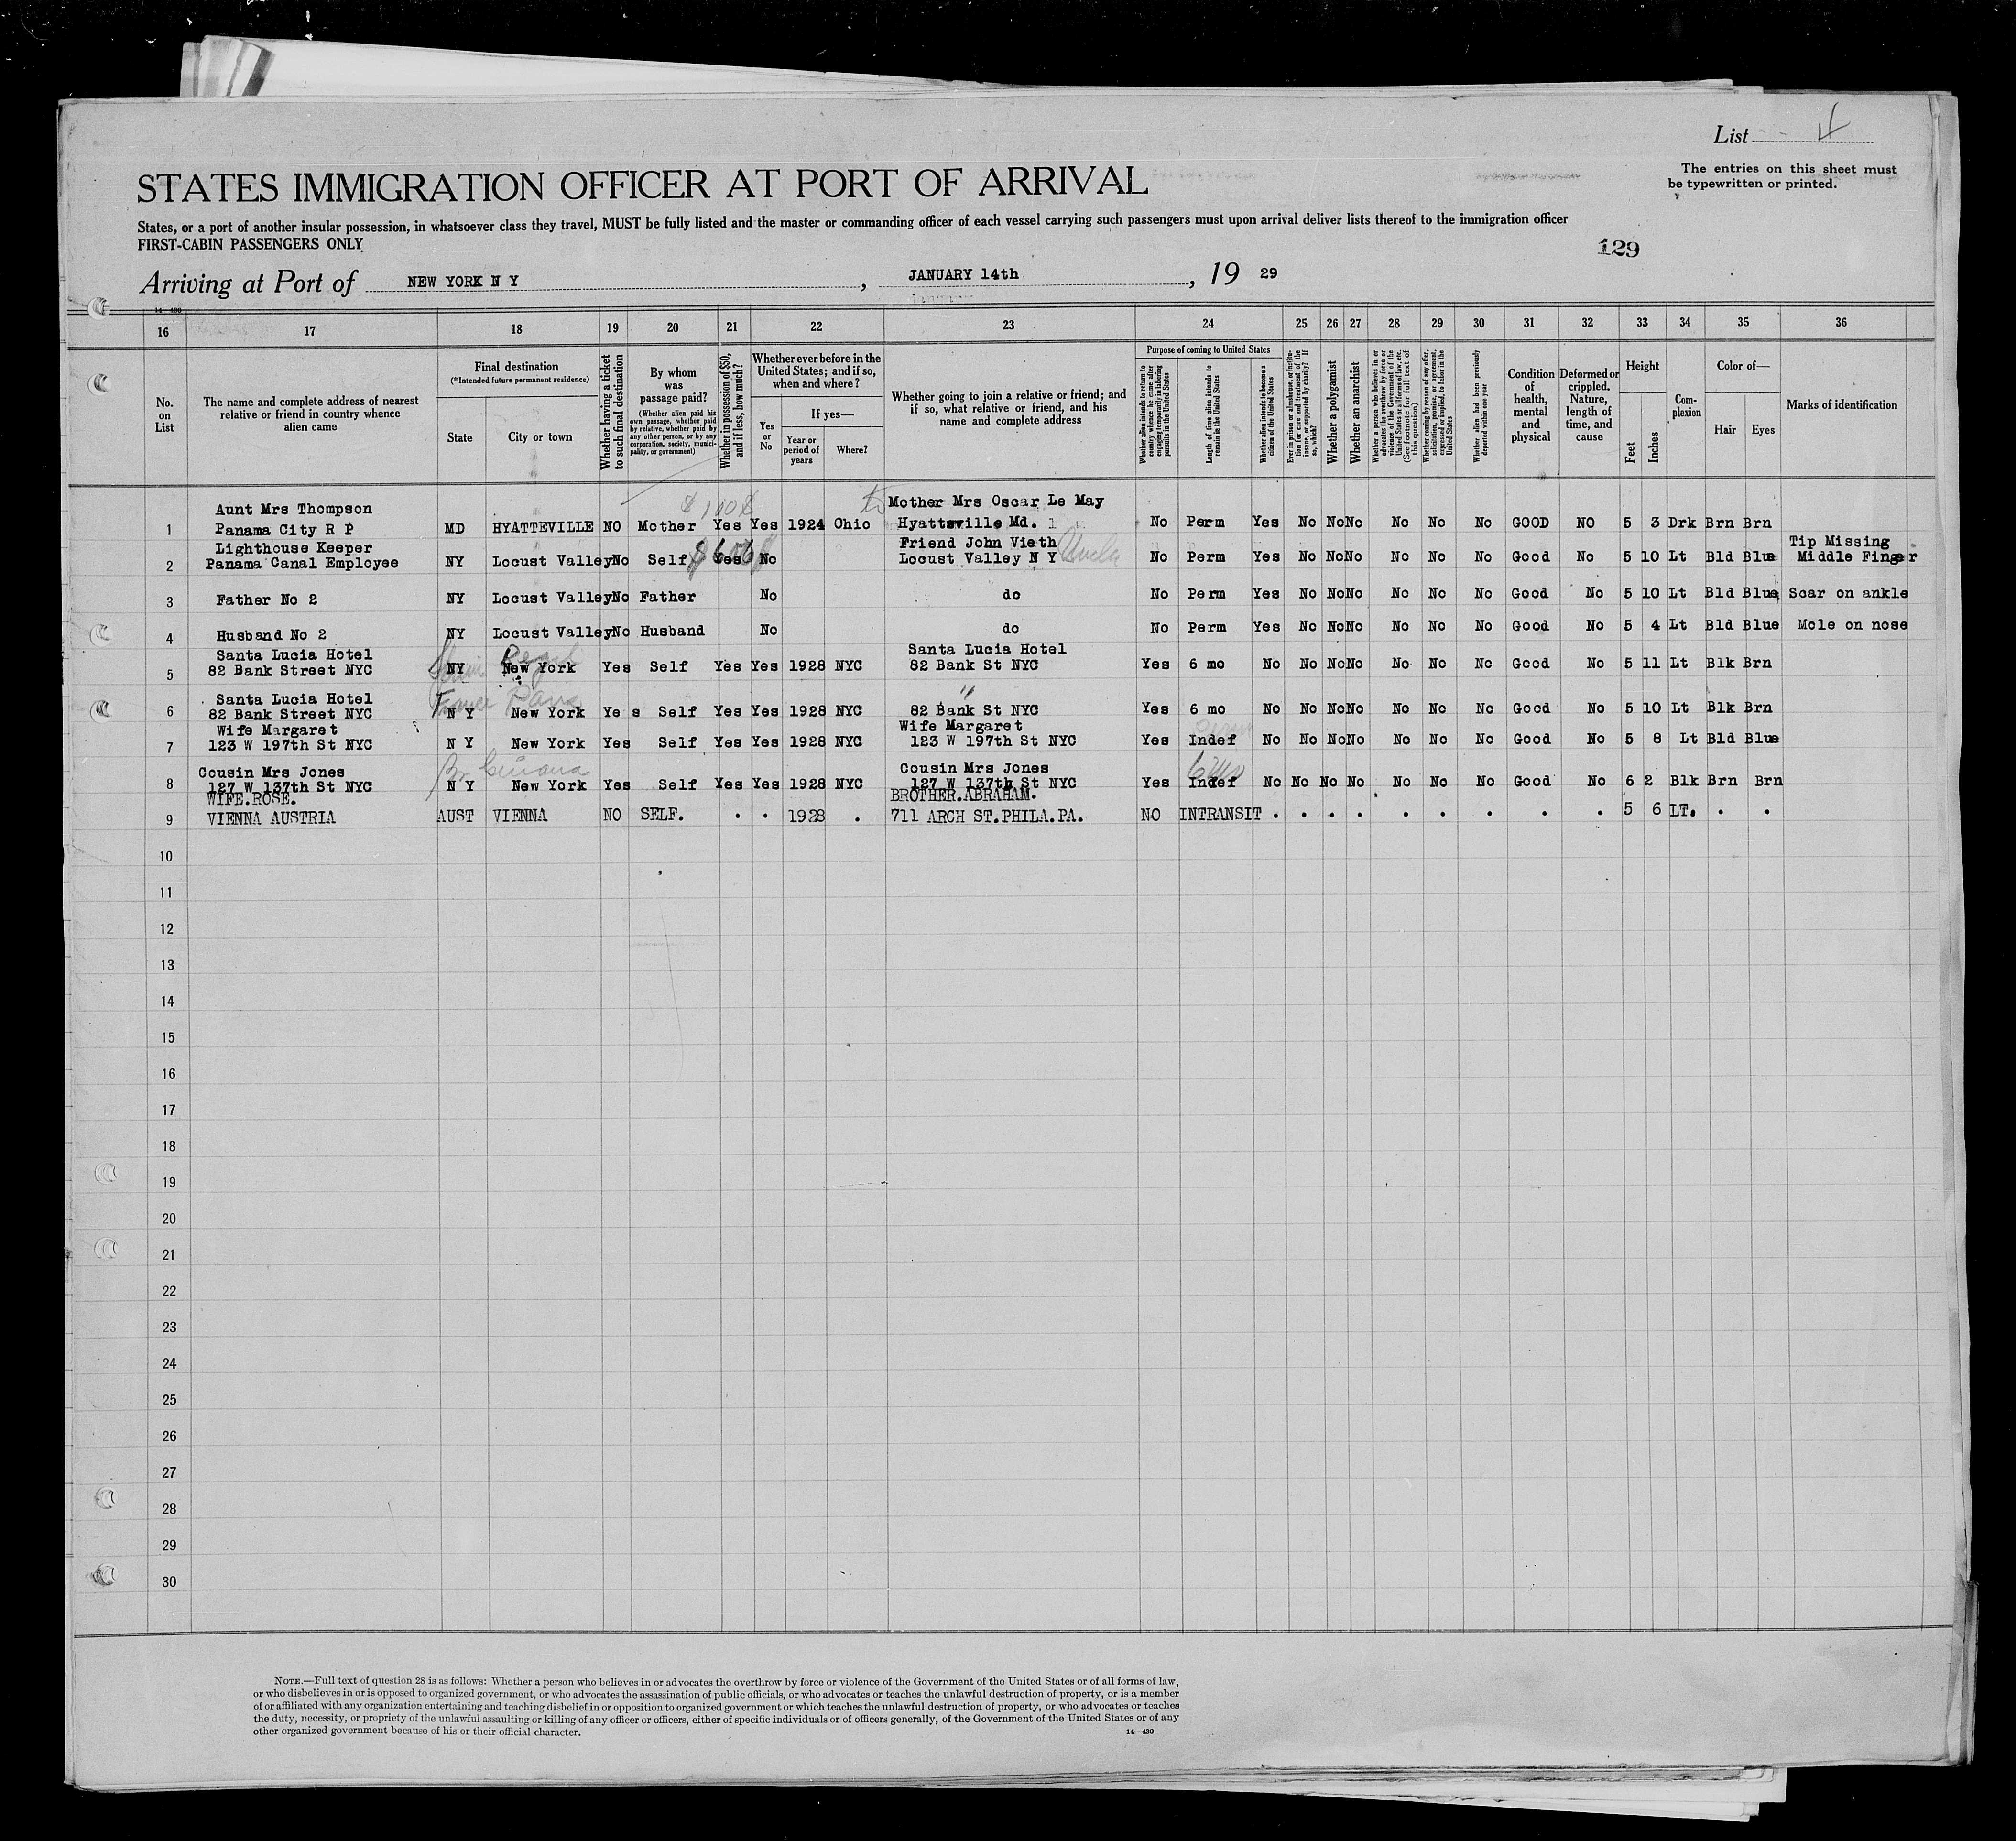 List
The entries on this sheet must
be typewritten or printed.
STATES IMMIGRATION OFFICER AT PORT OF ARRIVAL
States, or a port of another insular possession, in whatsoever class they travel, MUST be fully listed and the master or commanding officer of each vessel carrying such passengers must upon arrival deliver lists thereof to the immigration officer
FIRST-CABIN PASSENGERS ONLY
129
Arriving at Port of NEW YORK N Y, JANUARY 14th, 19 29
14—430
16 17 18 19 20 21 22 23 24 25 26 27 28 29 30 31 32 33 34 35 36
No. on List
The name and complete address of nearest relative or friend in country whence alien came
Final destination
(*Intended future permanent residence)
State
City or town
Whether having a ticket to such final destination
By whom was passage paid?
(Whether alien paid his own passage, whether paid by relative, whether paid by any other person, or by any corporation, society, municipality, or government)
Whether in possession of $50, and if less, how much?
Whether ever before in the United States; and if so, when and where?
Yes or No
If yes—
Year or period of years
Where?
Whether going to join a relative or friend; and if so, what relative or friend, and his name and complete address
Purpose of coming to United States
Whether alien intends to return to country whence he came after engaging temporarily in laboring pursuits in the United States
Length of time alien intends to remain in the United States
Whether alien intends to become a citizen of the United States
Ever in prison or almshouse, or institution for care and treatment of the insane, or supported by charity? If so, which?
Whether a polygamist
Whether an anarchist
Whether a person who believes in or advocates the overthrow by force or violence of the Government of the United States or all forms of law, etc. (See footnote for full text of this question)
Whether coming by reason of any offer, solicitation, promise, or agreement, expressed or implied, to labor in the United States
Whether alien had been previously deported within one year
Condition of health, mental and physical
Deformed or crippled. Nature, length of time, and cause
Height
Feet
Inches
Complexion
Color of—
Hair
Eyes
Marks of identification
Aunt Mrs Thompson Mother Mrs Oscar Le May
1 Panama City R P MD HYATTEVILLE NO Mother Yes Yes 1924 Ohio Hyattsville Md. No Perm Yes No No No No No No GOOD NO 5 3 Drk Brn Brn
Lighthouse Keeper Friend John Vieth Uncle Tip Missing
2 Panama Canal Employee NY Locust Valley No Self Yes No Locust Valley N Y No Perm Yes No No No No No No Good No 5 10 Lt Bld Blue Middle Finger
3 Father No 2 NY Locust Valley No Father No do No Perm Yes No No No No No No Good No 5 10 Lt Bld Blue Scar on ankle
4 Husband No 2 NY Locust Valley No Husband No do No Perm Yes No No No No No No Good No 5 4 Lt Bld Blue Mole on nose
Santa Lucia Hotel Santa Lucia Hotel
5 82 Bank Street NYC NY New York Yes Self Yes Yes 1928 NYC 82 Bank St NYC Yes 6 mo No No No No No No No Good No 5 11 Lt Blk Brn
Santa Lucia Hotel "
6 82 Bank Street NYC N Y New York Ye s Self Yes Yes 1928 NYC 82 Bank St NYC Yes 6 mo No No No No No No No Good No 5 10 Lt Blk Brn
Wife Margaret Wife Margaret
7 123 W 197th St NYC N Y New York Yes Self Yes Yes 1928 NYC 123 W 197th St NYC Yes Indef No No No No No No No Good No 5 8 Lt Bld Blue
Br Guiana
Cousin Mrs Jones Cousin Mrs Jones
8 127 W 137th St NYC N Y New York Yes Self Yes Yes 1928 NYC 127 W 137th St NYC Yes Indef No No No No No No No Good No 6 2 Blk Brn Brn
WIFE.ROSE. BROTHER.ABRAHAM.
9 VIENNA AUSTRIA AUST VIENNA NO SELF. . . 1928 . 711 ARCH ST.PHILA.PA. NO INTRANSIT . . . . . . . . . 5 6 LT. . .
10
11
12
13
14
15
16
17
18
19
20
21
22
23
24
25
26
27
28
29
30
NOTE.—Full text of question 28 is as follows: Whether a person who believes in or advocates the overthrow by force or violence of the Government of the United States or of all forms of law,
or who disbelieves in or is opposed to organized government, or who advocates the assassination of public officials, or who advocates or teaches the unlawful destruction of property, or is a member
of or affiliated with any organization entertaining and teaching disbelief in or opposition to organized government or which teaches the unlawful destruction of property, or who advocates or teaches
the duty, necessity, or propriety of the unlawful assaulting or killing of any officer or officers, either of specific individuals or of officers generally, of the Government of the United States or of any
other organized government because of his or their official character.
14—430